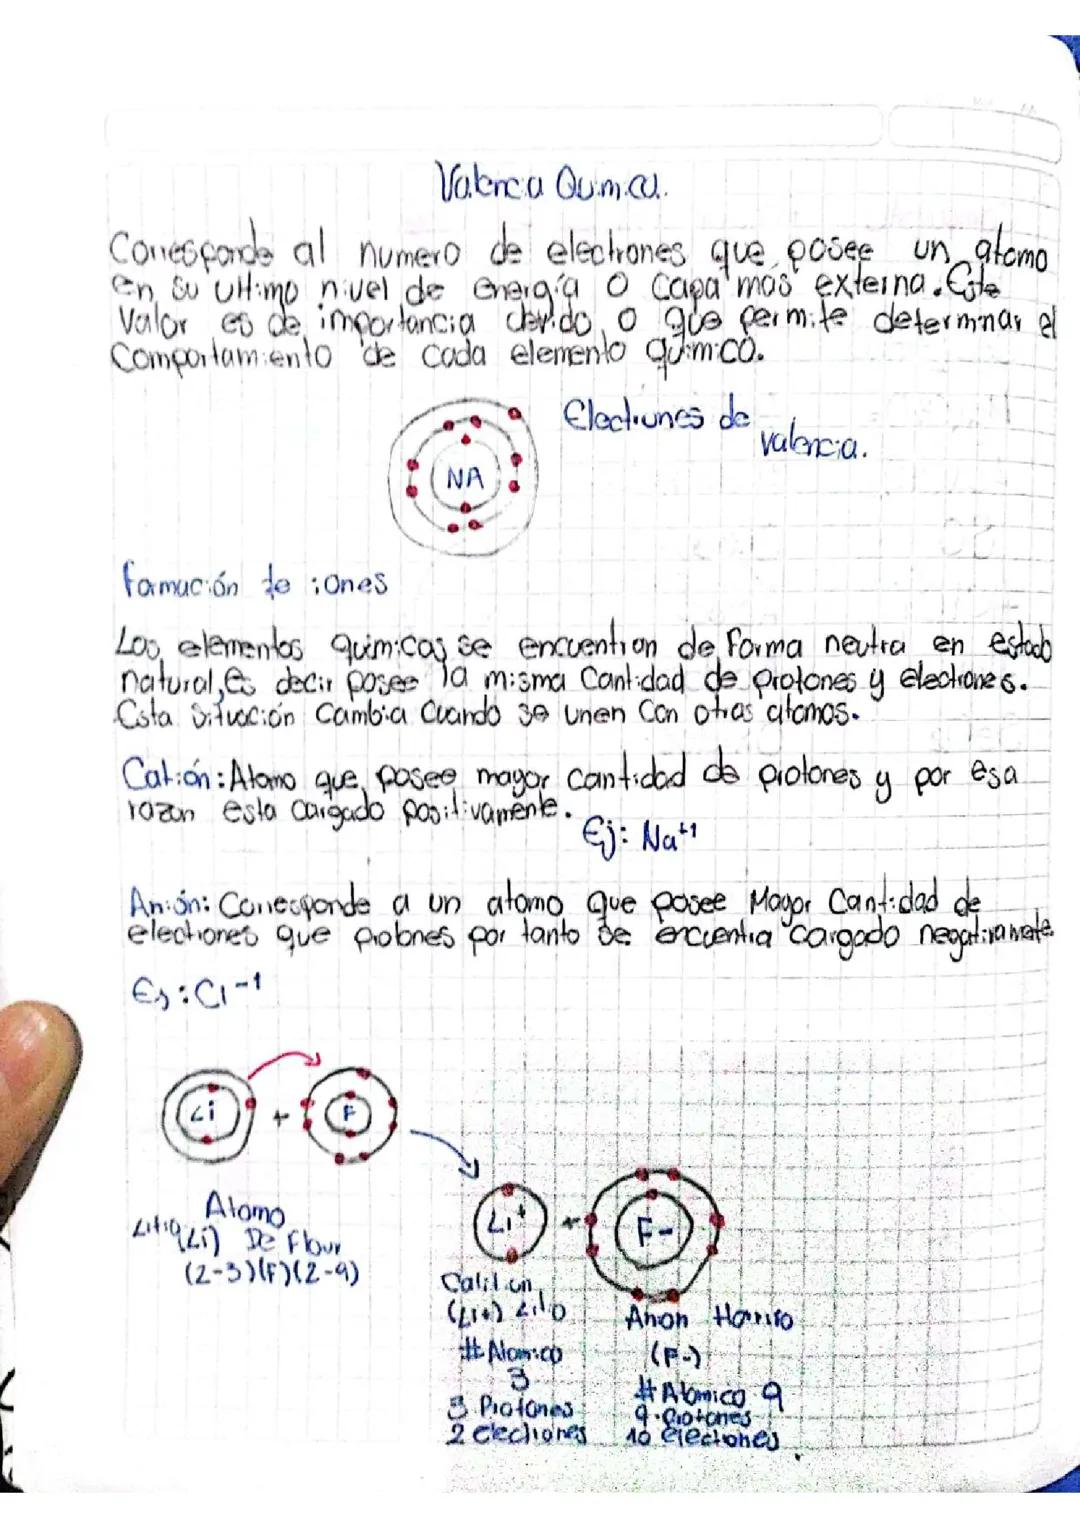 Valencia Quimica.
Corresponde al numero de electrones que posee un atomo
en su ultimo nivel de energía o capa mas externa. Este
Valor es de importancia devido o que permite determinar el
Comportamiento de cada elemento quimico.
Electrones de
valencia.
NA
formación de iones
Los elementos quimicas se encuentran de forma neutra en estado
natural, es decir posee la misma Cantidad de protones y electrones.
Esta Situación Cambia Cuando se unen Con otras atomos.
Catión: Atomo que posee mayor cantidad de protones y por esa
razon esta cargado positivamente.
Ej: Na+1
Anión: Corresponde a un atomo que posee Mayor Cantidad de
electrones que protones por tanto se encuentra cargado negativamente
Ej: Cl-1
Li + F
Atomo
Litio (Li) De Flour
(2-3)(F)(2-9)
Li+ + F-
(Li+) Anon
# Atomico (F-)
3 # Atomico 9
3 Protones 9 protones
2 electrones 10 electrones